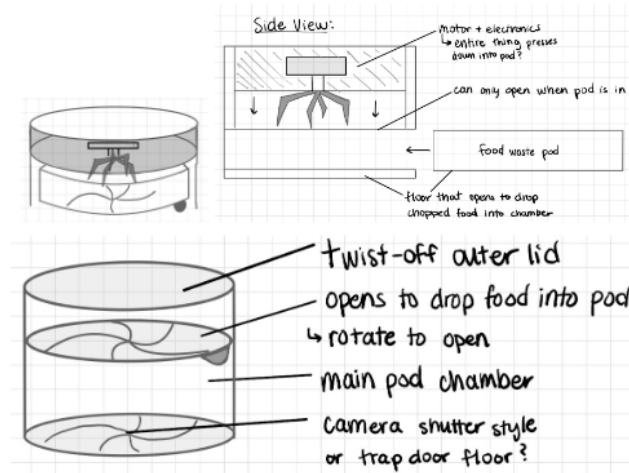 Side View:
motor + electronics
↳ entire thing presses
down into pod?
can only open when pod is in
food waste pod
floor that opens to drop
chopped food into chamber
twist-off outer lid
opens to drop food into pod
↳ rotate to open
main pod chamber
camera shutter style
or trap door floor?